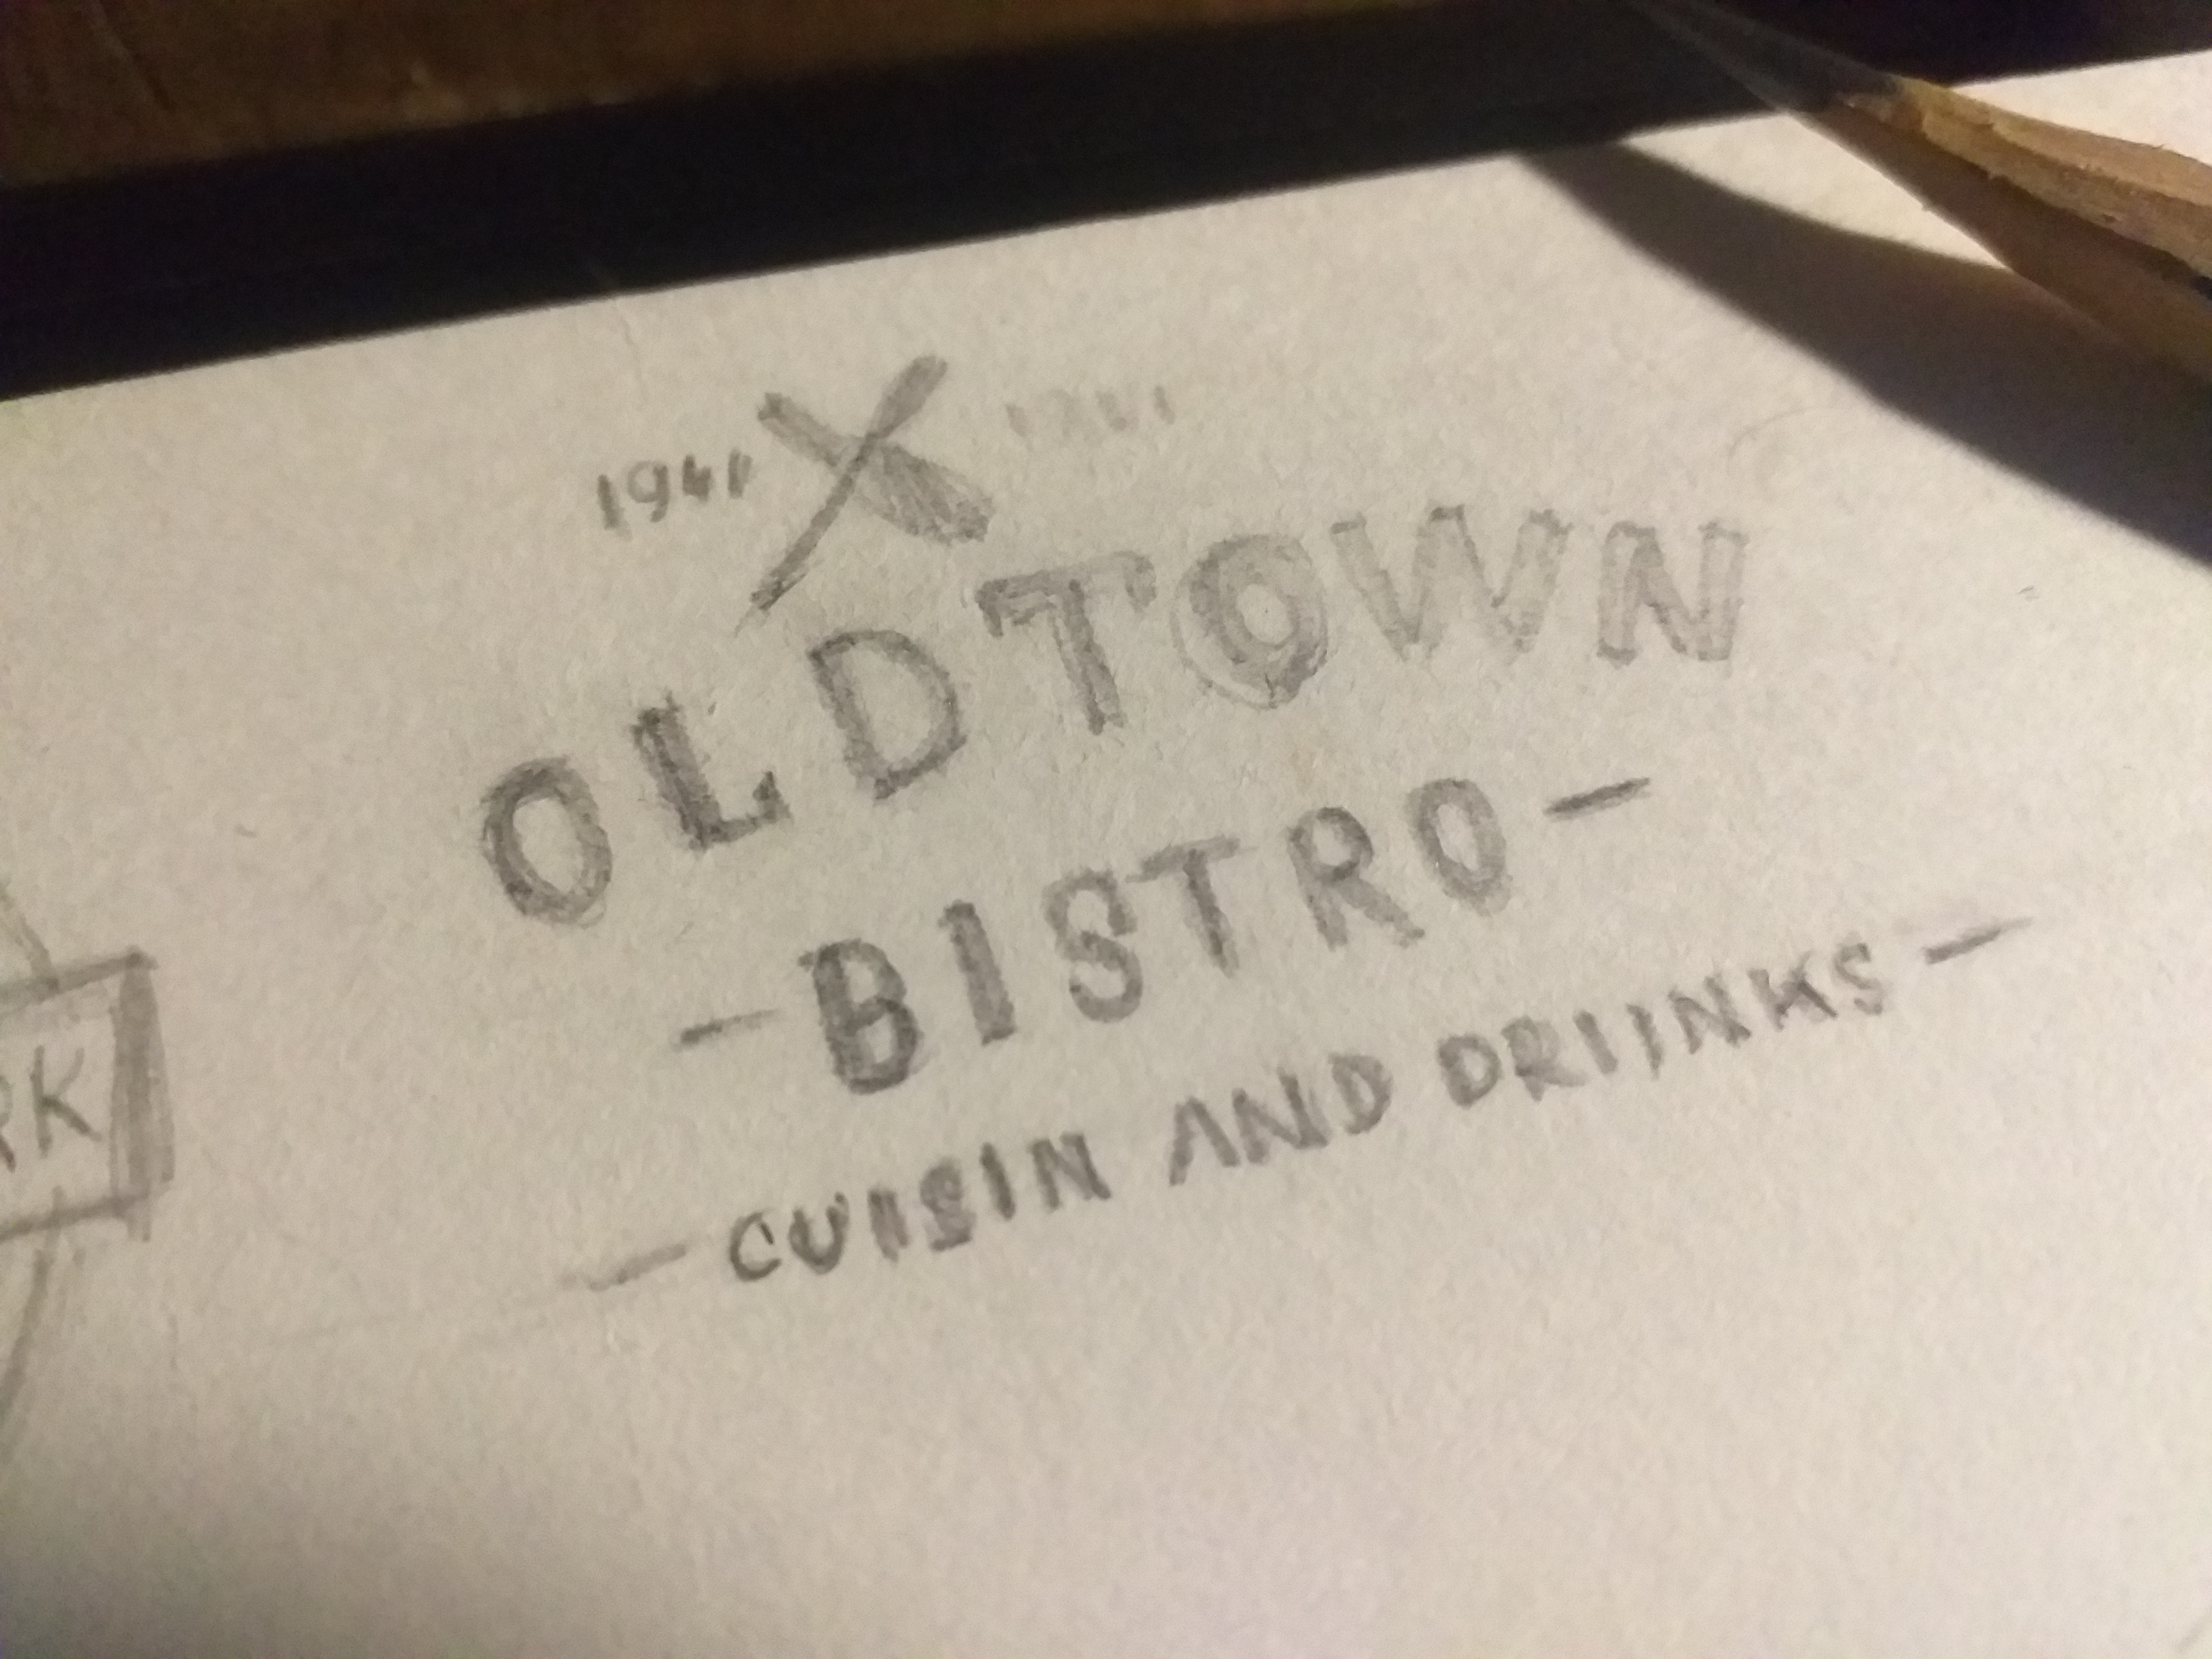 1941
OLD TOWN
- BISTRO -
- CUISIN AND DRIINKS -
RK